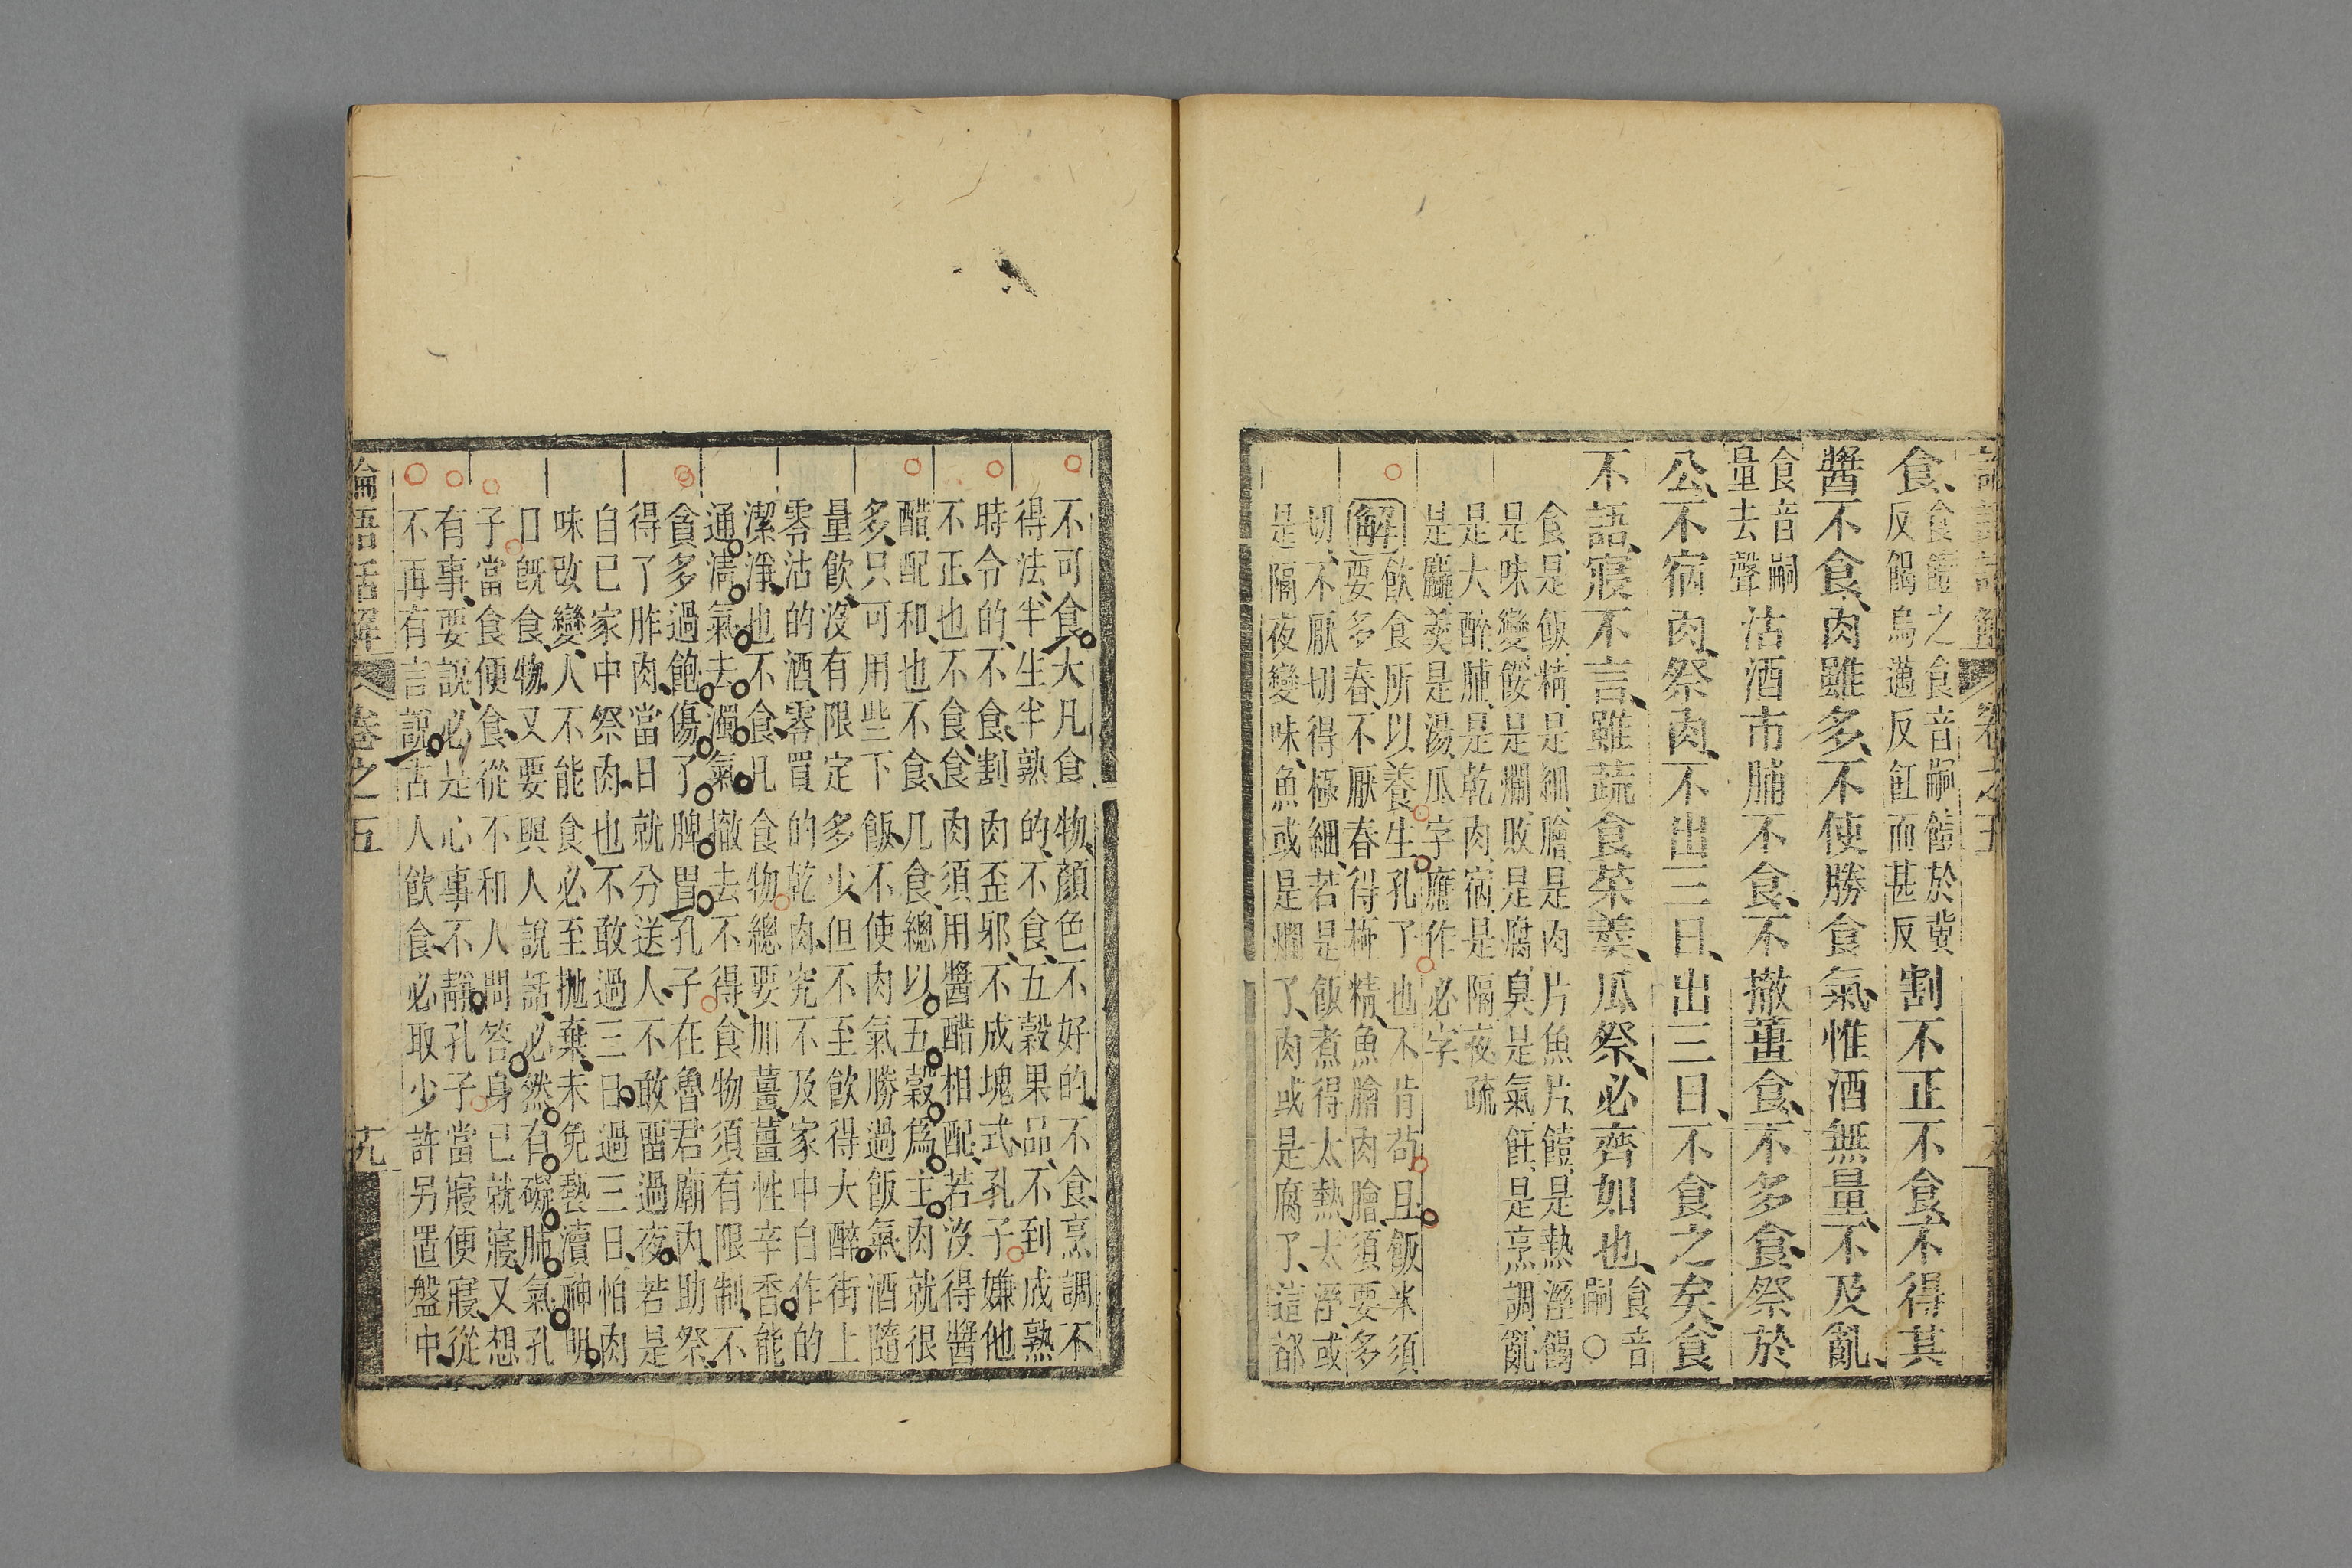 食、食饐之食音嗣饐於冀
反餲烏邁反飪而甚反割不正不食、不得其
醬不食、肉雖多、不使勝食氣、惟酒無量、不及亂、
食音嗣
量去聲沽酒市脯不食、不撤薑食、不多食、祭於
公、不宿肉、祭肉、不出三日、出三日、不食之矣、食
不語、寢不言、雖蔬食菜羹、瓜祭、必齊如也、食音
嗣〇
食、是飯、精、是細、膾、是肉片魚片、饐、是熱溼、餲
是味變、餒、是爛、敗、是腐、臭、是氣、飪、是烹調、亂、
是大醉、脯、是乾肉、宿、是隔夜、疏
是麤、羹、是湯、瓜字應作必字
飲食所以養生、孔子也不肯苟且、飯米須
解要多舂、不厭舂得極精、魚膾肉膾、須要多
切、不厭切得極細、若是飯煮得太熱、太溼、或
是隔夜變味、魚或是爛了、肉或是腐了、這都
不可食、大凡食物、顏色不好的、不食、烹調不
得法、半生半熟的、不食、五穀果品、不到成熟
時令的、不食、割肉歪邪、不成塊式、孔子嫌他
不正、也不食、食肉須用醬醋相配、若沒得醬
醋配和、也不食、凡食、總以五穀爲主、肉就很
多、只可用些下飯、不使肉氣勝過飯氣、酒隨
量飲、沒有限定多少、但不至飲得大醉、街上
零沽的酒、零買的乾肉、究不及家中自作的
潔淨、也不食、凡食物、總要加薑、薑性辛香、能
通淸氣、去濁氣、撤去不得、食物須有限制、不
貪多過飽、傷了脾胃、孔子在魯君廟內、助祭、
得了胙肉、當日就分送人、不敢畱過夜、若是
自已家中祭肉、也不敢過三日、過三日、怕肉
味改變、人不能食、必至抛棄、未免褻瀆神明、
口旣食物、又要與人說話、必然有礙肺氣、孔
子當食便食、從不和人問答、身已就寢、又想
有事、要說、必是心事不靜、孔子當寢便寢、從
不再有言說、古人飲食、必取少許另置盤中、
論語話解 卷之五 十九